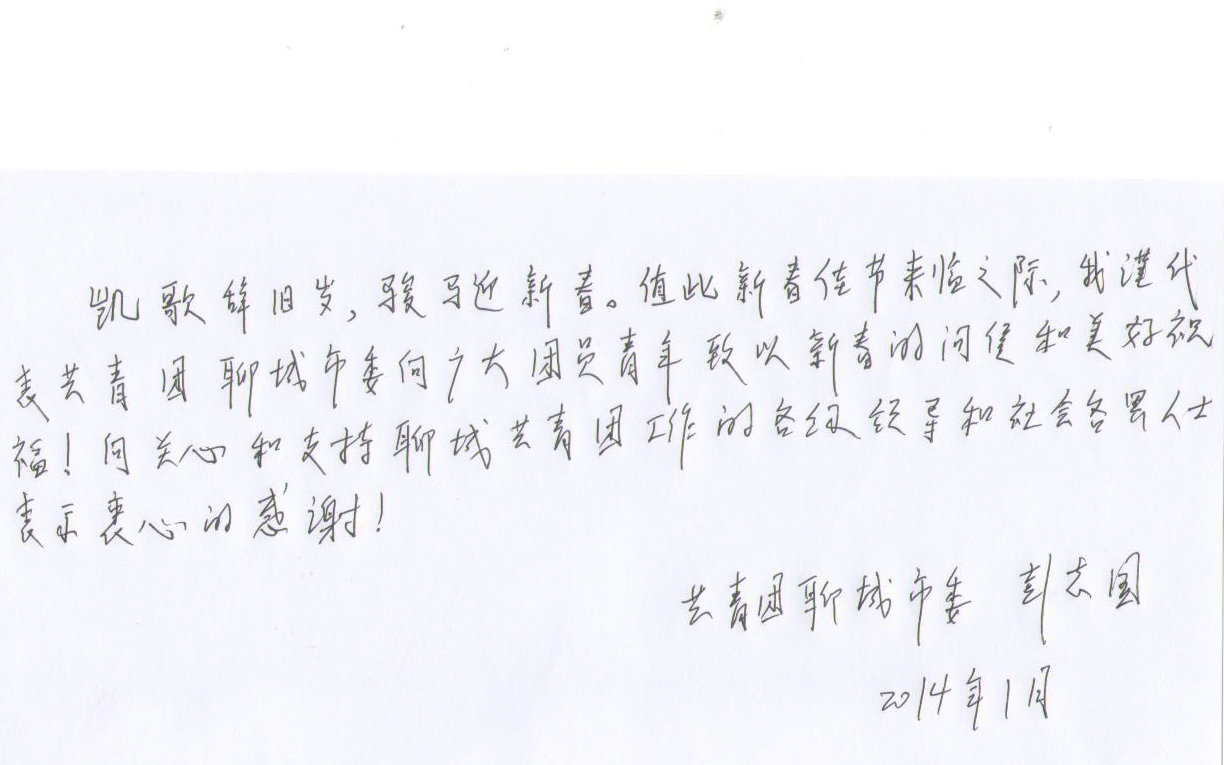 凯歌辞旧岁，骏马迎新春。值此新春佳节来临之际，我谨代
表共青团聊城市委向广大团员青年致以新春的问候和美好祝
福！向关心和支持聊城共青团工作的各级领导和社会各界人士
表示衷心的感谢！
共青团聊城市委 彭志国
2014年1月